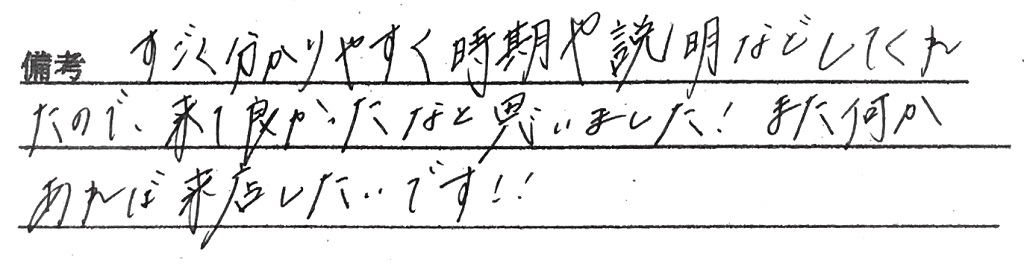 備考 すごく分かりやすく時期や説明などしてくれ
たので、来て良かったなと思いました！また何か
あれば来店したいです！！